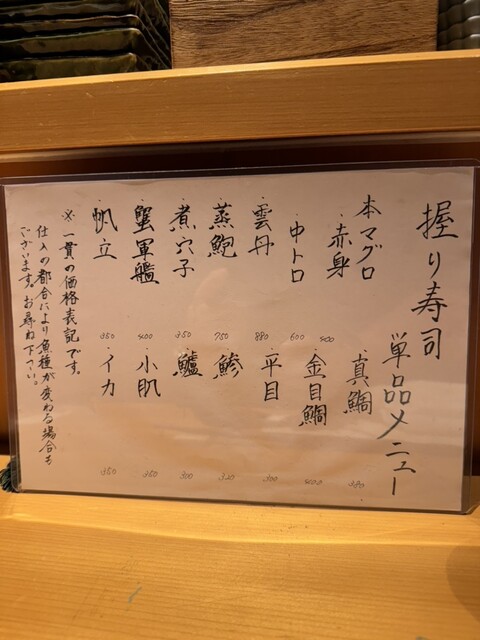 握り寿司
単品メニュー
本マグロ
・赤身 400
・中トロ 600
・雲丹 880
・蒸鮑 750
・煮穴子 350
・蟹軍艦 400
・帆立 350
・真鯛 380
・金目鯛 400
・平目 300
・鯵 320
・鱸 300
・小肌 250
・イカ 350
※一貫の価格表記です。
仕入の都合により魚種が変わる場合も
ございます。お尋ね下さい。